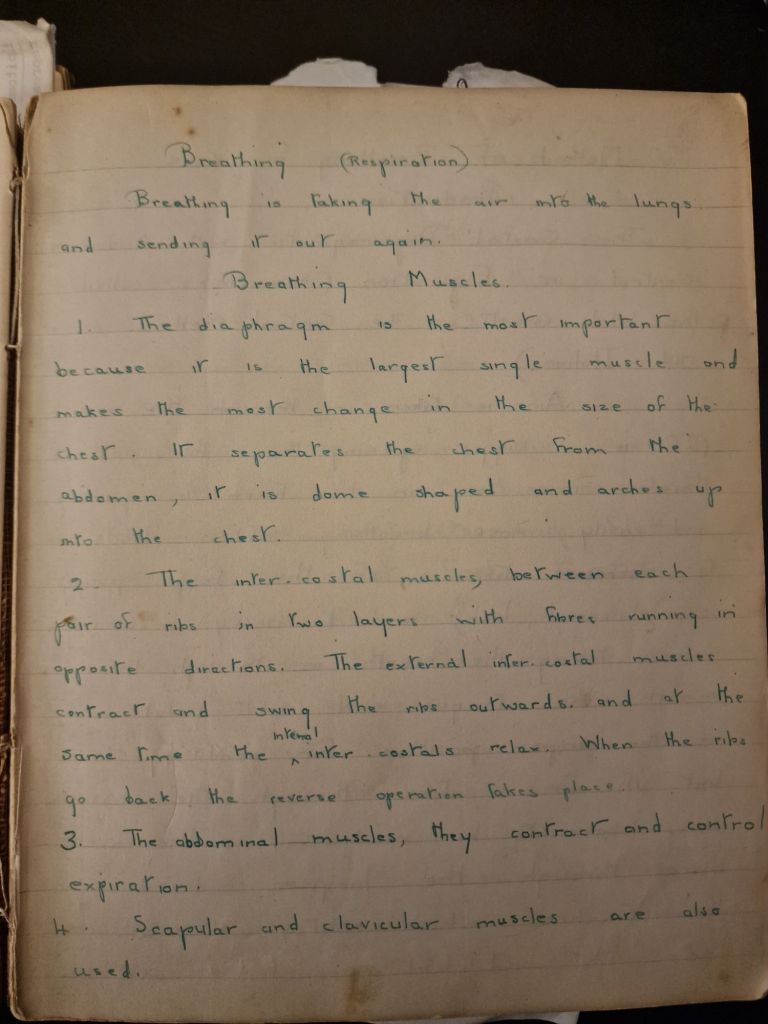 Breathing (Respiration)
Breathing is taking the air into the lungs
and sending it out again.
Breathing Muscles.
1. The diaphragm is the most important
because it is the largest single muscle and
makes the most change in the size of the
chest. It separates the chest from the
abdomen, it is dome shaped and arches up
into the chest.
2. The inter-costal muscles, between each
pair of ribs in two layers with fibres running in
opposite directions. The external inter-costal muscles
contract and swing the ribs outwards. and at the
same time the ^internal inter-costals relax. When the ribs
go back the reverse operation takes place.
3. The abdominal muscles, they contract and control
expiration.
4. Scapular and clavicular muscles are also
used.